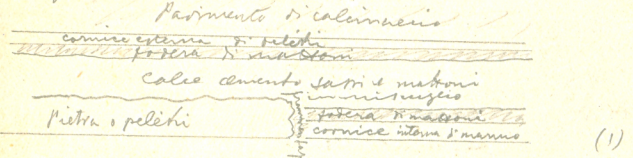 Pavimento di calcinaccio
cornice esterna di
fodera di mattoni
Calce cemento sassi e mattoni
in miscuglio
Pietra o
fodera di mattoni
cornice interna di marmo
(1)